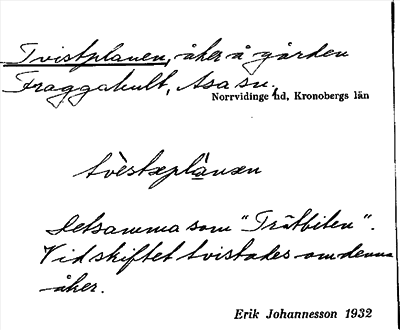 Tvistplanen, åker å gården
Fraggahult, Asa sn.
Norrvidinge hd, Kronobergs län
tvèstæplànæn
Detsamma som "Tråtbiten".
Vid skiftet tvistades om denna
åker.
Erik Johannesson 1932